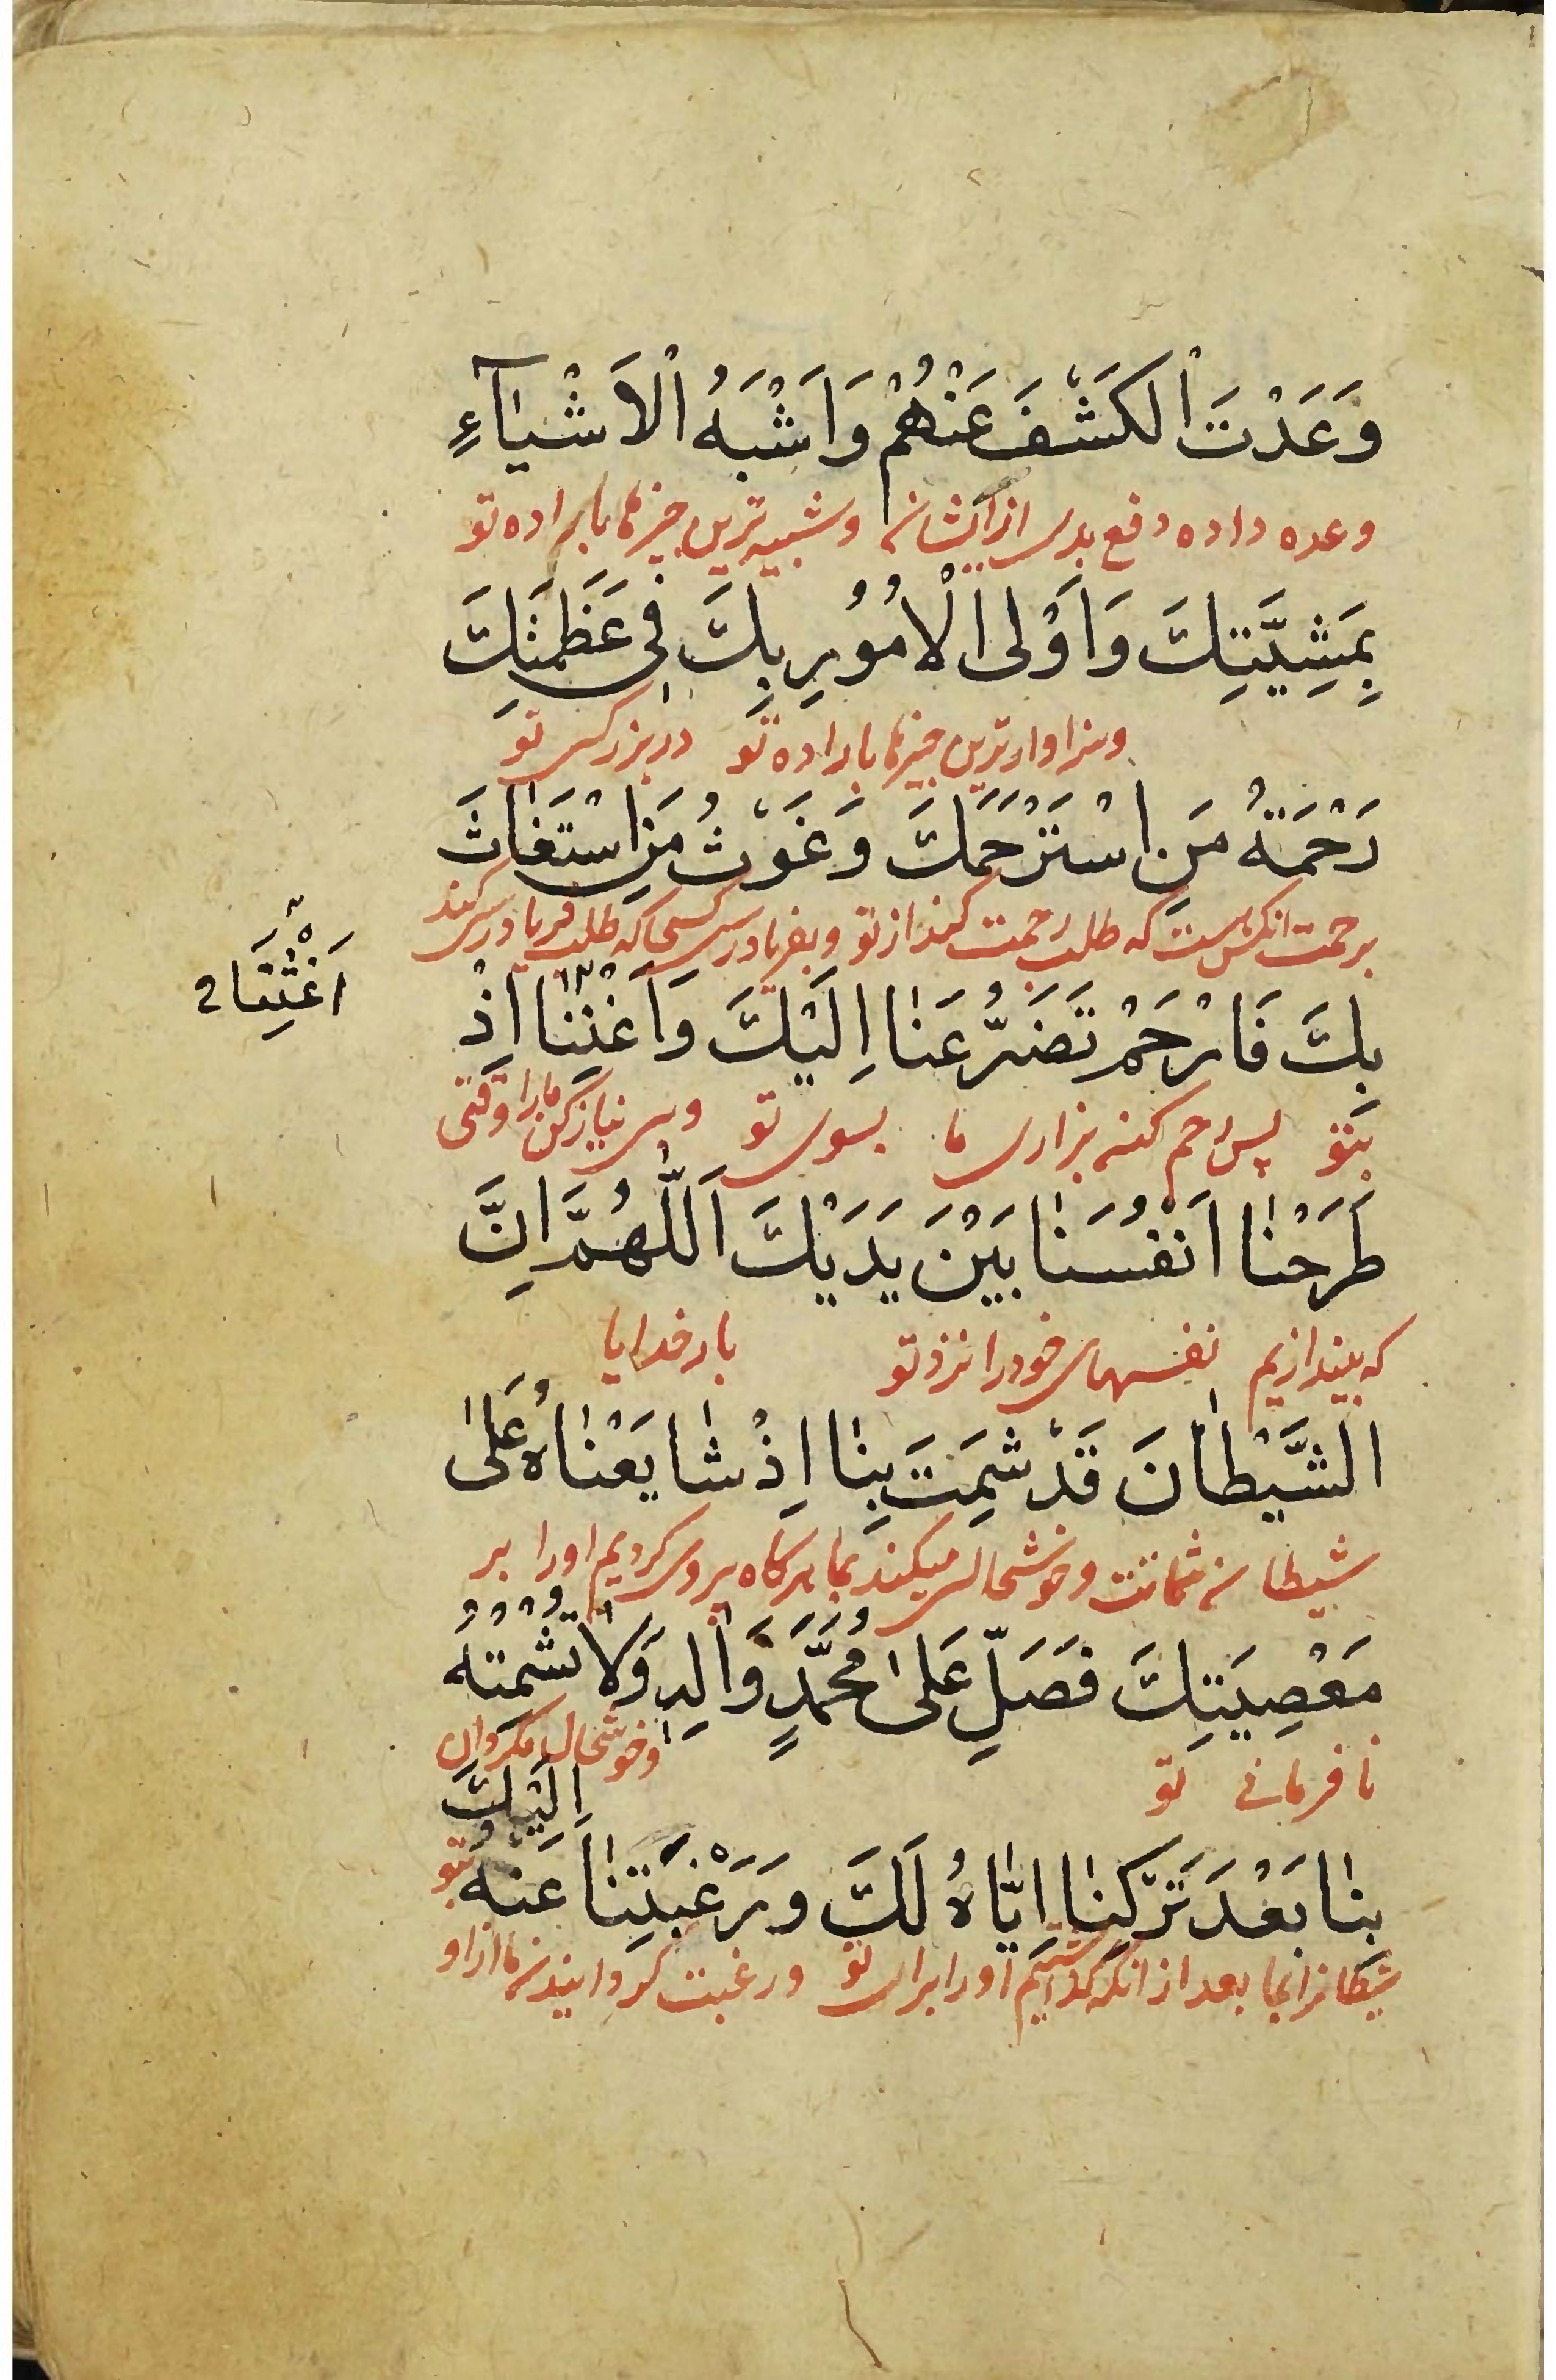 وَعَدْتَ الْكَشْفَ عَنْهُمْ وَاَشْبَهُ الْاَشْيٰآءِ
وعده داده دفع بدی از ایشان وشبیه ترین چیزها باراده تو
بِمَشِيَّتِكَ وَاَوْلَى الْاُمُوُرِ بِكَ فى عَظَمَتِكَ
وسزاوارترین چیزها باراده تو در بزرگی تو
رَحْمَةُ مَنِ اسْتَرْحَمَكَ وَغَوْثُ مَنِ اسْتَغٰاثَ
برحمت انکس است که طلب رحمت کند از تو وبفریادرسی کسیکه طلب فریادرسی کند
بِكَ فَارْحَمْ تَضَرُّعَنٰا اِلَيْكَ وَاَغْنِنٰا اِذْ
اَغِثْنَا
بتو پس رحم کن بزاری ما بسوی تو وبی نیاز کن مارا وقتی
طَرَحْنٰا اَنْفُسَنٰا بَيْنَ يَدَيْكَ اَللّٰهُمَّ اِنَّ
که بیندازیم نفسهای خودرا نزد تو بار خدایا
الشَّيْطٰانَ قَدْ شَمِتَ بِنٰا اِذْ شٰايَعْنٰاهُ عَلىٰ
شیطان شماتت وخوشحالی میکند بما هرکاه پیروی کردیم اورا بر
مَعْصِيَتِكَ فَصَلِّ عَلىٰ مُحَمَّدٍ وَاٰلِهِ وَلٰا تُشْمِتْهُ
نافرمانی تو وخوشحال مکردان
بِنٰا بَعْدَ تَرْكِنٰا اِيّٰاهُ لَكَ وَرَغْبَتِنٰا عَنْهُ اِلَيْكَ
شیطانرا بما بعد از انکه گذاشتیم اورا برای تو ورغبت کردانیدن ما از او بتو